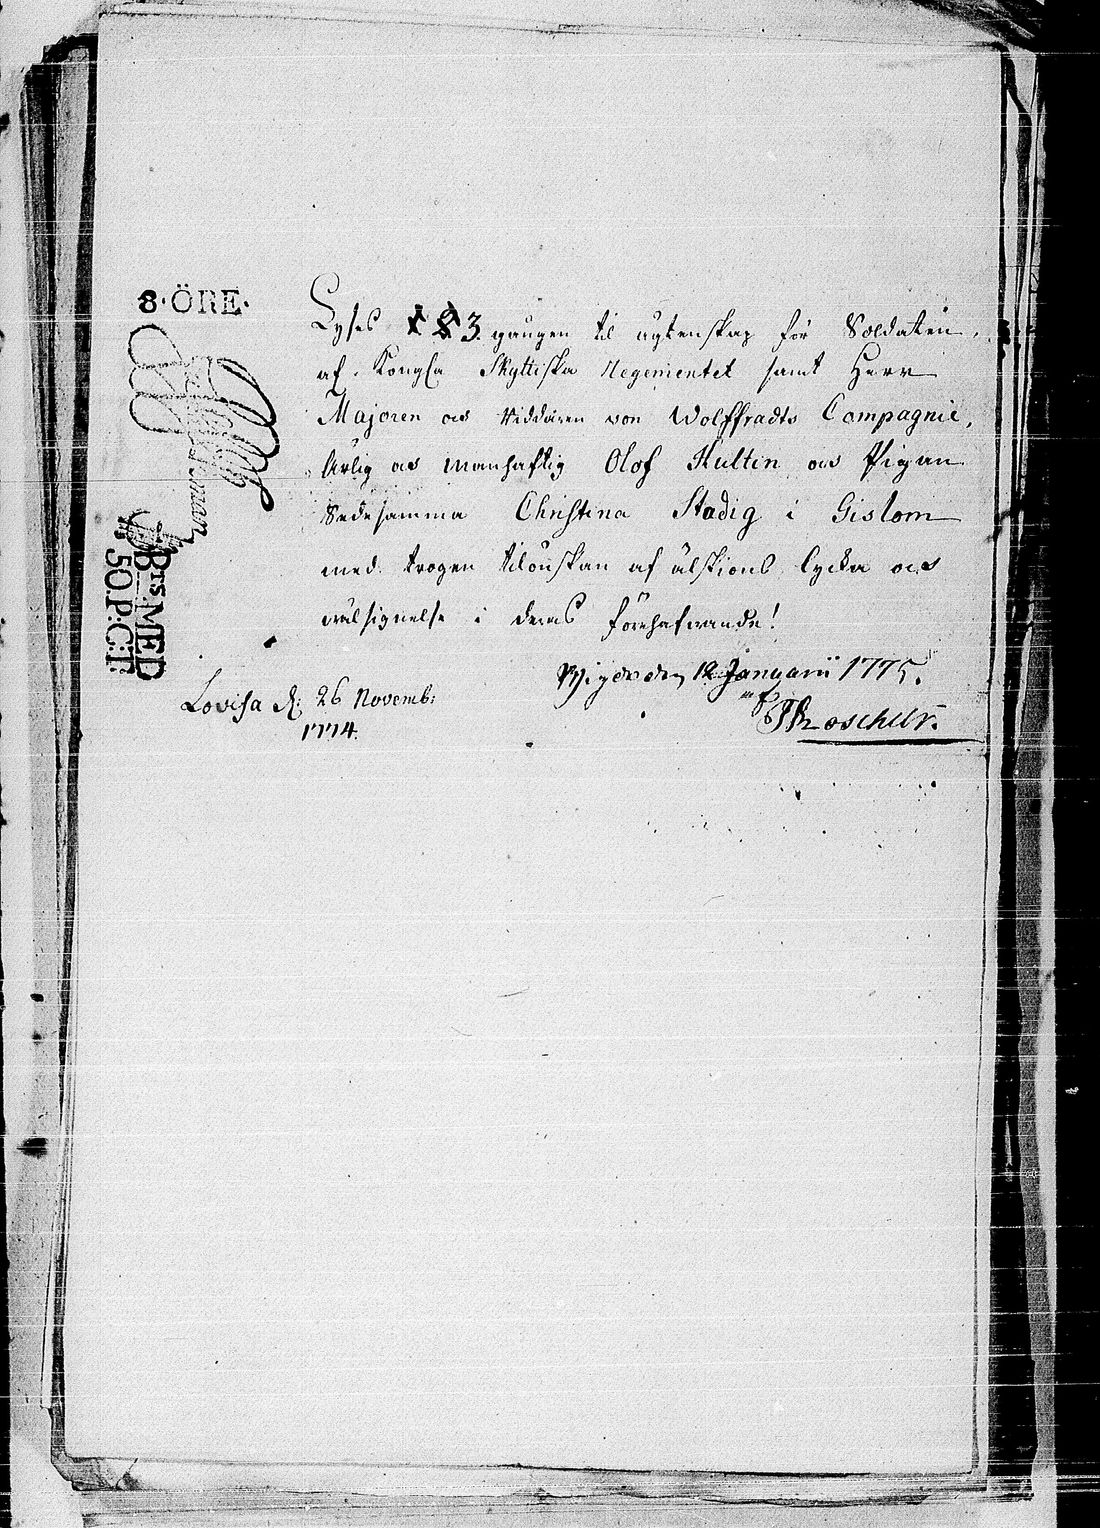 8·ÖRE·
Lyses 1 2 3. gången til ägtenskap för Soldaten,
af Kongla Skyttiska Regementet samt Herr
Majoren och Riddaren von Wolffradts Compagnie,
Ärlig och Manhaftig Olof Hultin och Pigan
Sedesamma Christina Stadig i Gislom
med trogen tilönskan af älskions lycka och
välsignelse i deras förehafwande!
den 12 Januarii 1775.
Lovisa d: 26 Novemb:
1774.
BTS. MED
50.P.C:T.